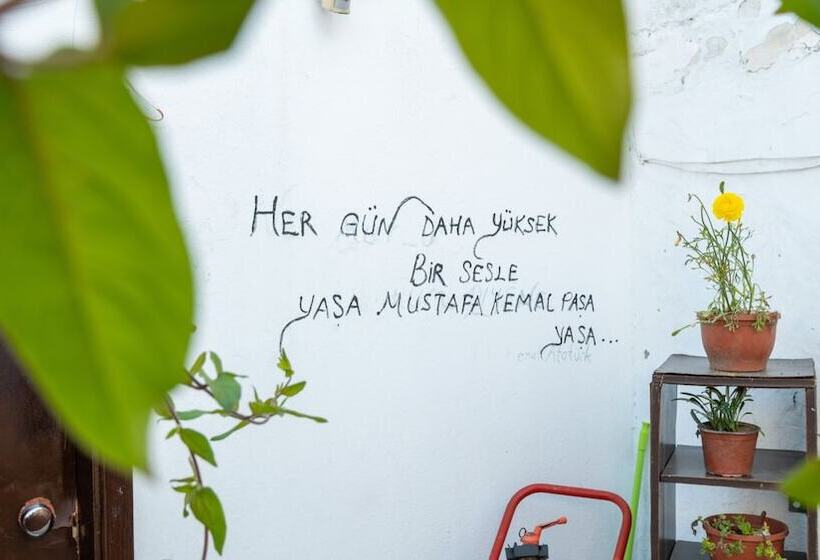 HER GÜN DAHA YÜKSEK
BİR SESLE
YAŞA MUSTAFA KEMAL PAŞA
YAŞA...